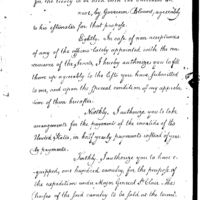 by Governor Blount, agreeably
to his estimates for that purpose.
Eightly. In case of non acceptances
of any of the offices lately appointed, with the ma-
nœuvres of the Senate, I hereby authorize you to fill
them up agreeably to the lists you have submitted
to me, and upon the special condition of my approba-
tion of them hereafter.
Ninthly. I authorize you to take
arrangements for the payments of the invalids of the
United States, in half yearly payments instead of year-
ly payments.
Tenthly. I authorize you to have e-
quipped, one hundred cavalry, for the purpose
of the expedition under Major General St. Clair. The
horses of the said cavalry to be sold at the